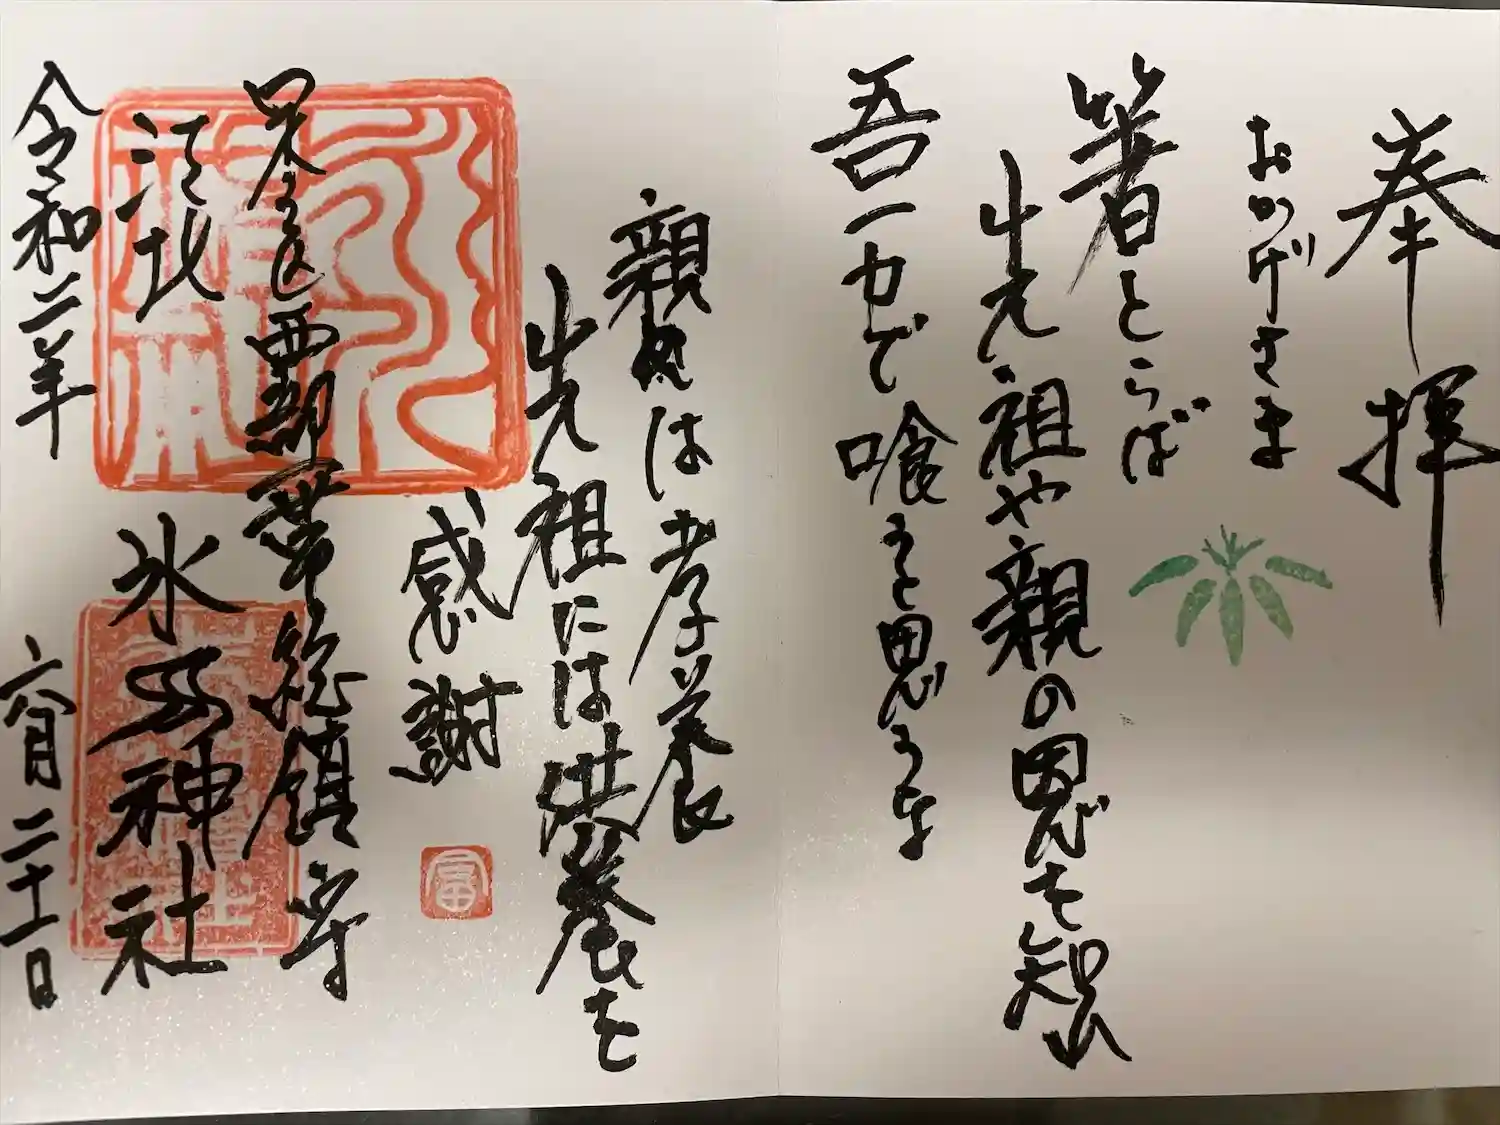 奉拝
おかげさま
箸とらば
先祖や親の恩を知れ
吾一力で喰うと思うな
親には孝養
先祖には供養を
感謝
足立区西部一帯総鎮守
江北
氷川神社
令和二年
六月二十一日
富